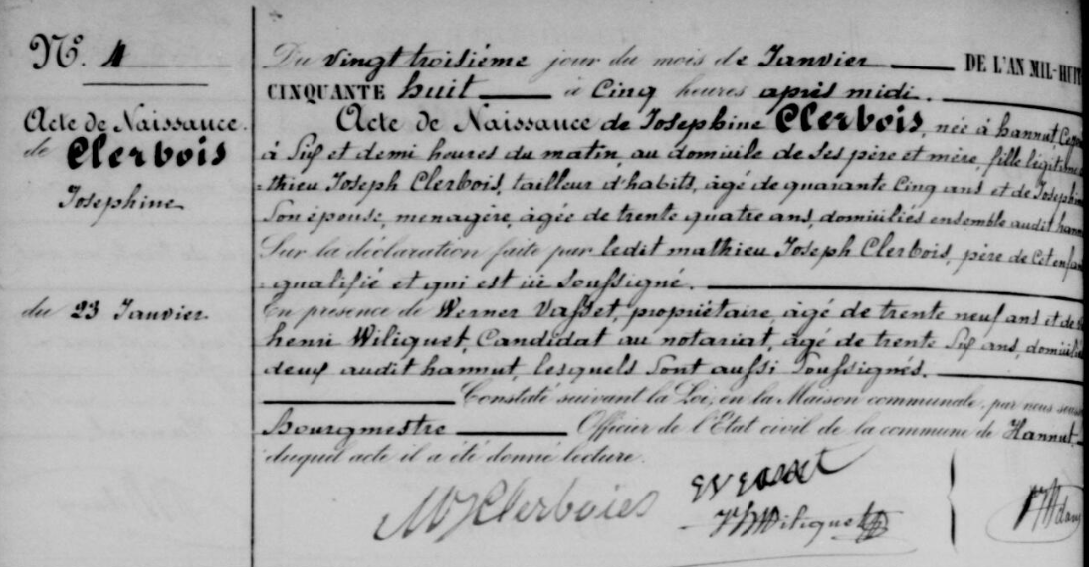 Nº. 4
Acte de Naissance
de Clerbois
Josephine
du 23 Janvier
Du vingt troisiéme jour du mois de Janvier DE L'AN MIL-HUIT
CINQUANTE huit à Cinq heures après midi.
Acte de Naissance de Josephine Clerbois, née à hannut,
à Six et demi heures du matin, au domicile de Ses père et mère, fille légitime
-thieu Joseph Clerbois, tailleur d'habits, âgé de quarante Cinq ans et de Josephine
Son épouse, menagère, âgée de trente quatre ans, domiciliés ensemble audit hannut
Sur la déclaration faite par ledit mathieu Joseph Clerbois, père de Cet enfant
qualifié et qui est ici Soussigné.
En présence de Werner Vasset, propriétaire, âgé de trente neuf ans et de
henri Wiliquet, Candidat au notariat, âgé de trente Six ans, domiciliés
deux audit hannut, lesquels Sont aussi Soussignés.
Constaté suivant la Loi, en la Maison communale, par nous
bourgmestre Officier de l'Etat civil de la commune de Hannut,
duquel acte il a été donné lecture.
MJClerboies
Wiliquet